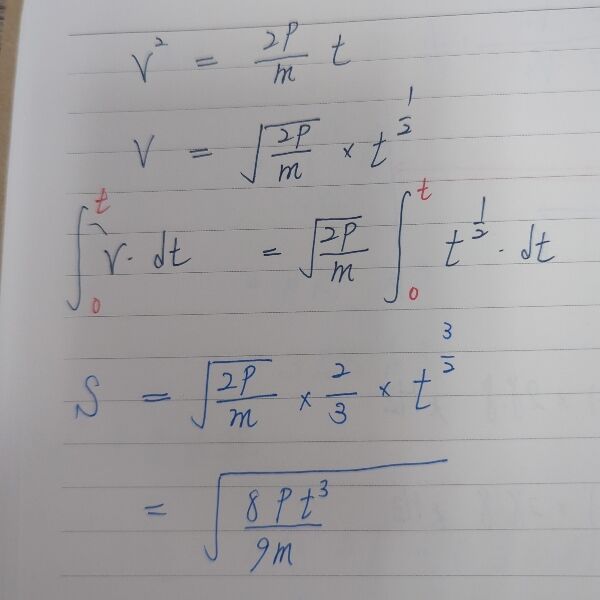 v² = 2P/m t
v = √(2P/m) × t^(1/2)
∫₀ᵗ v · dt = √(2P/m) ∫₀ᵗ t^(1/2) · dt
S = √(2P/m) × 2/3 × t^(3/2)
= √(8Pt³/9m)